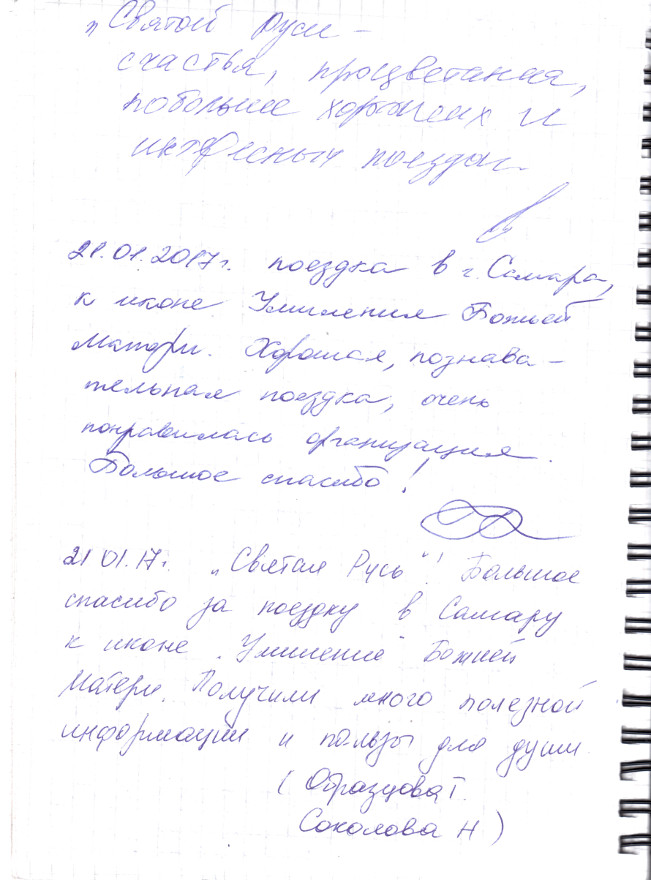 „Святой Руси –
счастья, процветания,
побольше хороших и
интересных поездок.
21.01.2017г. поездка в г. Самара,
к иконе Умиления Божьей
Матери. Хорошая, познава-
тельная поездка, очень
понравилась организация.
Большое спасибо!
21 01.17г. „Святая Русь"! Большое
спасибо за поездку в Самару
к иконе „Умиление" Божией
Матери. Получили много полезной
информации и пользы для души
(Образцова Т.
Соколова Н)